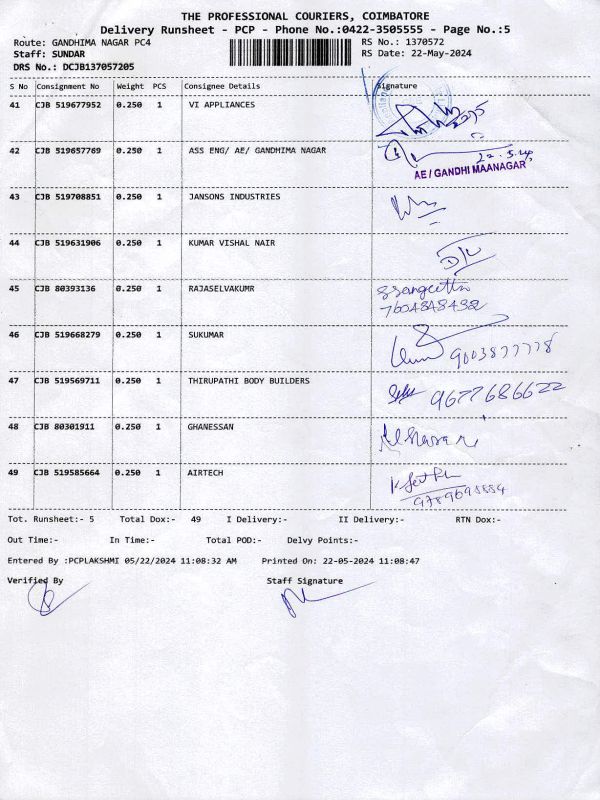 THE PROFESSIONAL COURIERS, COIMBATORE
Delivery Runsheet - PCP - Phone No.:0422-3505555 - Page No.:5
Route: GANDHIMA NAGAR PC4 RS No.: 1370572
Staff: SUNDAR RS Date: 22-May-2024
DRS No.: DCJB137057205
S No Consignment No Weight PCS Consignee Details Signature
41 CJB 519677952 0.250 1 VI APPLIANCES
42 CJB 519657769 0.250 1 ASS ENG/ AE/ GANDHIMA NAGAR 22.5.24
AE / GANDHI MAANAGAR
43 CJB 519708851 0.250 1 JANSONS INDUSTRIES
44 CJB 519631906 0.250 1 KUMAR VISHAL NAIR
45 CJB 80393136 0.250 1 RAJASELVAKUMR
46 CJB 519668279 0.250 1 SUKUMAR
47 CJB 519569711 0.250 1 THIRUPATHI BODY BUILDERS 9677686622
48 CJB 80301911 0.250 1 GHANESSAN
49 CJB 519585664 0.250 1 AIRTECH
Tot. Runsheet:- 5 Total Dox:- 49 I Delivery:- II Delivery:- RTN Dox:-
Out Time:- In Time:- Total POD:- Delvy Points:-
Entered By :PCPLAKSHMI 05/22/2024 11:08:32 AM Printed On: 22-05-2024 11:08:47
Verified By Staff Signature